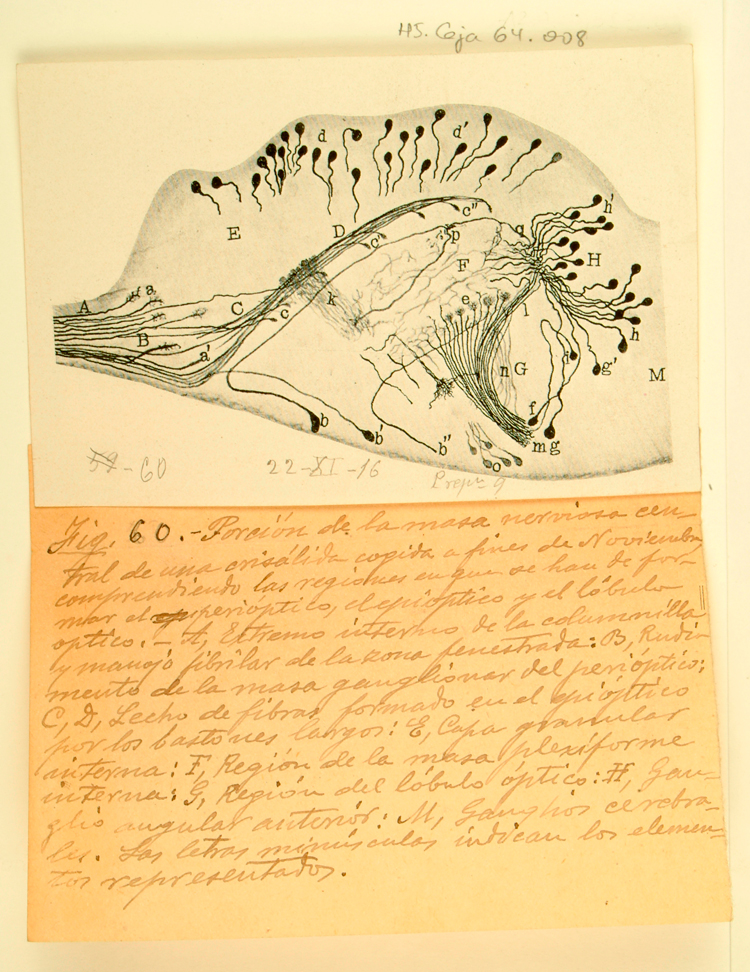 HS. Caja 64.008
d
d'
h'
E
D
c''
c'
p
q
F
H
A
a
C
k
e
c
l
h
B
a'
i
g'
n
G
M
b
b'
b''
f
m
g
o
59-60
22-XI-16
Prepn 9
Fig. 60.- Porción de la masa nerviosa cen-
tral de una crisálida cogida a fines de Noviembre
comprendiendo las regiones en que se han de for-
mar el perióptico, el epióptico y el lóbulo
optico. - A, Extremo interno de la columnilla
y manojo fibrilar de la zona fenestrada: B, Rudi-
mento de la masa ganglionar del perióptico:
C, D, Lecho de fibras formado en el epióptico
por los bastones largos: E, Capa granular
interna: F, Región de la masa plexiforme
interna: G, Región del lóbulo óptico: H, Gan-
glio angular anterior: M, Ganglios cerebra-
les. Las letras minúsculas indican los elemen-
tos representados.